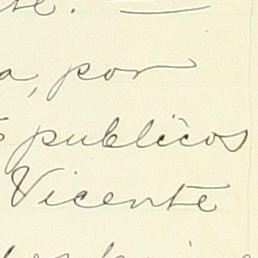 a, por
publicos
Vicente